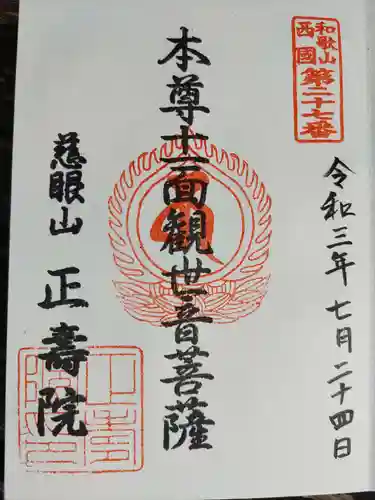 和歌山
西國
第二十七番
令和三年七月二十四日
本尊十一面観世音菩薩
慈眼山 正壽院